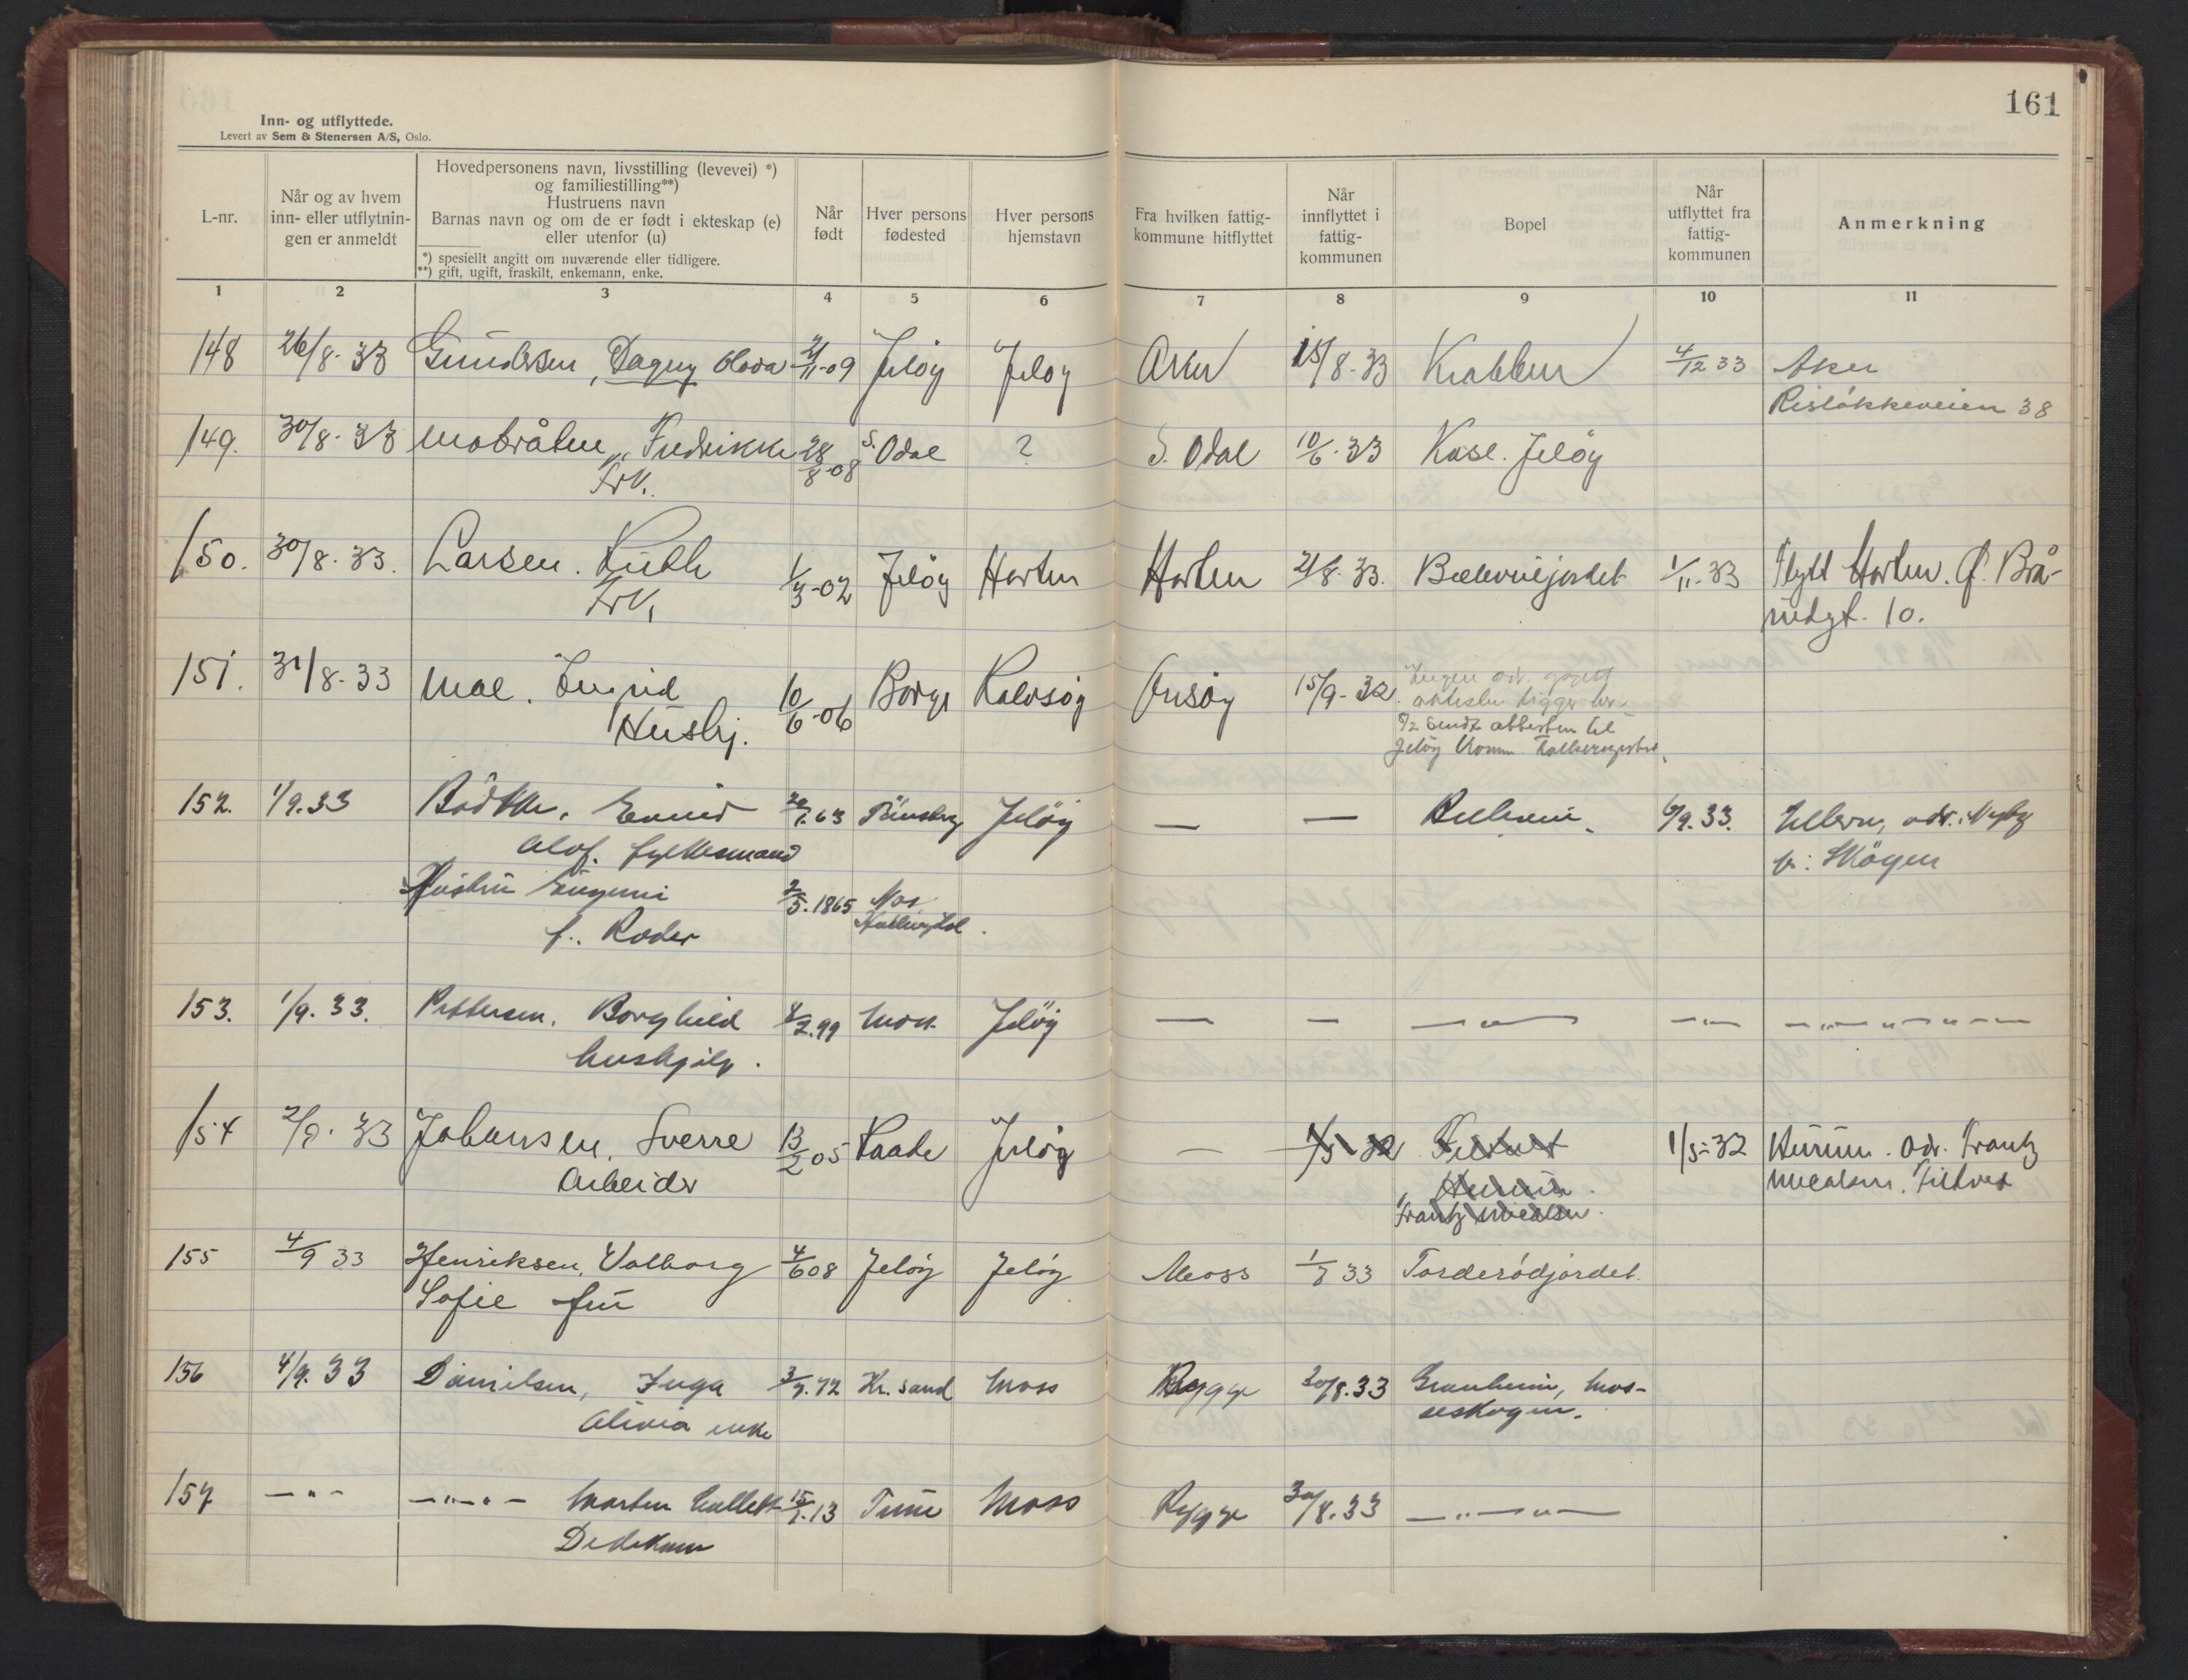 161
Inn- og utflyttede.
Levert av Sem & Stenersen A/S, Oslo.
L-nr.
Når og av hvem
inn- eller utflytnin-
gen er anmeldt
Hovedpersonens navn, livsstilling (levevei) *)
og familiestilling**)
Hustruens navn
Barnas navn og om de er født i ekteskap (e)
eller utenfor (u)
*) spesiellt angitt om nuværende eller tidligere.
**) gift, ugift, fraskilt, enkemann, enke.
Når
født
Hver persons
fødested
Hver persons
hjemstavn
Fra hvilken fattig-
kommune hitflyttet
Når
innflyttet i
fattig-
kommunen
Bopel
Når
utflyttet fra
fattig-
kommunen
Anmerkning
1 2 3 4 5 6 7 8 9 10 11
148 26/8-33 Gundersen, Dagny 21/11-09 Jeløy Jeløy 15/8-33 Krabben 4/12 33 Aker
Risløkkeveien 38
149. 30/8-33 Fredrikke 28/8-08 S. Odal ? S. Odal 10/6-33 Kase. Jeløy
Frk.
150. 30/8-33. Larsen. Ruth 1/3-02 Jeløy Horten Horten 21/8-33. Bellevuejordet 1/11-33 Flytt Horten. Ø. Brå-
Frk. nudgt. 10.
151. 31/8-33 Moe. Ingrid 10/6-06 Borge Kalvsøy Onsøy 15/9-32 Ingen adr. opgitt
Hushj. attesten ligger her
sendt attesten til
Jeløy Komm. Folkeregister
152. 1/9.33 Bödtke, Eivind 63 Tønsberg Jeløy — — 6/9.33. adr. Nesby
Olaf. fylkesmand v: Skøyen
Hustru Eugenie 2/5.1865 Nes
f. Roder Hallingdal.
153. 1/9.33. Pettersen, Borghild 99 Moss Jeløy — — — " — — " — — " — " — " — —
hushjelp.
154 2/9-33 Johansen, Sverre 13/2 05 Raade Jeløy — 1/5 32 Filtvet 1/5-32 Hurum. Adr. Frantz
Arbeider Hurum. Filtvet
Frantz
155 4/9 33 Henriksen, Valborg 4/6 08 Jeløy Jeløy Moss 33 Torderødjordet.
Sofie fru
156 4/9.33 Danielsen, Inga 72 Kr. sand Moss Rygge 30/8.33 Granheim, Mos-
Olivia enke seskogen.
157 — " — — " — " — Morten Collett 13 Tune Moss Rygge 30/8.33 — " — " —
Dedekam